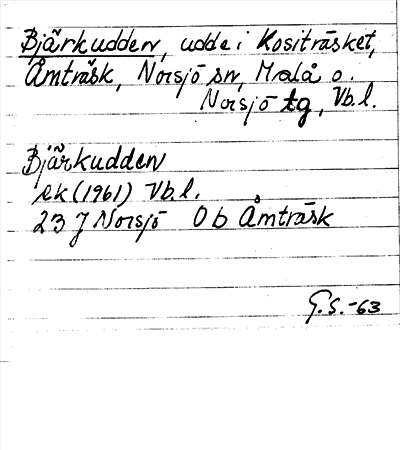 Bjärkudden, udde i Kositräsket,
Åmträsk, Norsjö sn, Malå o.
Norsjö tg, Vb.l.
Bjärkudden
ek (1961) Vb.l.
23 J Norsjö 0 b Åmträsk
G.S.-63